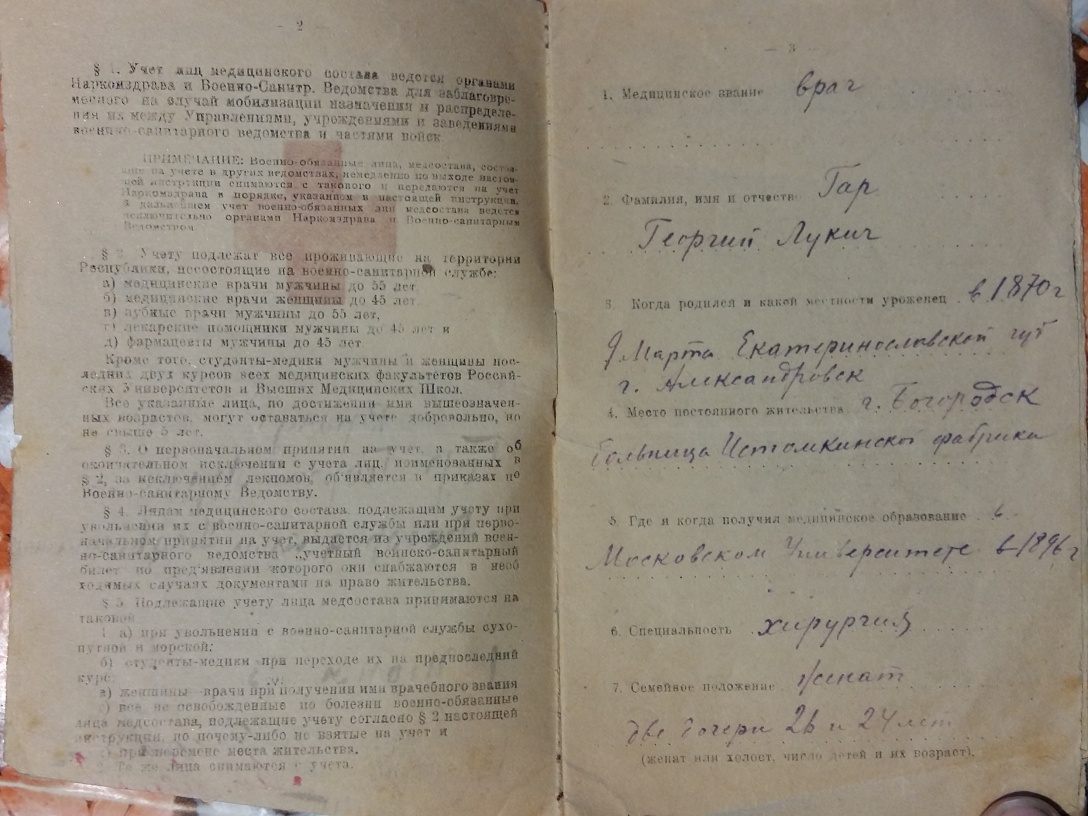 — 2 —
§ 1. Учет лиц медицинского состава ведется органами
Наркомздрава и Военно-Санитр. Ведомства для заблаговре-
менного на случай мобилизации назначения и распределе-
ния их между Управлениями, учреждениями и заведениями
военно-санитарного ведомства и частями войск
ПРИМЕЧАНИЕ: Военно-обязанные лица, медсостава, состоя-
щие на учете в других ведомствах, немедленно по выходе настоя-
щей инструкции снимаются с такового и передаются на учет
Наркомздрава в порядке, указанном в настоящей инструкции.
В дальнейшем учет военно-обязанных лиц медсостава ведется
исключительно органами Наркомздрава и Военно-санитарным
Ведомством.
§ 2. Учету подлежат все проживающие на территории
Республики, несостоящие на военно-санитарной службе:
а) медицинские врачи мужчины до 55 лет,
б) медицинские врачи женщины до 45 лет
в) зубные врачи мужчины до 55 лет,
г) лекарские помощники мужчины до 45 лет и
д) фармацевты мужчины до 45 лет
Кроме того, студенты-медики мужчины и женщины пос-
ледних двух курсов всех медицинских факультетов Россий-
ских Университетов и Высших Медицинских Школ.
Все указанные лица, по достижении ими вышеозначен-
ных возрастов, могут оставаться на учете добровольно, но
не свыше 5 лет.
§ 3. О первоначальном принятии на учет, а также об
окончательном исключении с учета лиц, поименованных в
§ 2, за исключением лекпомов, об'является в приказах по
Военно-санитарному Ведомству.
§ 4. Лицам медицинского состава, подлежащим учету при
увольнении их с военно-санитарной службы или при перво-
начальном принятии на учет, выдается из учреждений воен-
но-санитарного ведомства „учетный воинско-санитарный
билет" по пред'явлении которого они снабжаются в необ
ходимых случаях документами на право жительства.
§ 5 Подлежащие учету лица медсостава принимаются на
таковой
а) при увольнении с военно-санитарной службы сухо-
путной и морской;
б) студенты-медики при переходе их на предпоследний
курс
в) женщины—врачи при получении ими врачебного звания
г) все не освобожденные по болезни военно-обязанные
лица медсостава, подлежащие учету согласно § 2 настоящей
инструкции, но почему-либо не взятые на учет и
при перемене места жительства.
Те же лица снимаются с учета.
— 3 —
1. Медицинское звание врач
2. Фамилия, имя и отчество Гар
Георгий Лукич
3. Когда родился и какой местности уроженец в 1870 г
9 Марта Екатеринославской губ
г. Александровск
4. Место постоянного жительства г. Богородск
больница Истомкинской фабрики
5. Где и когда получил медицинское образование в
Московском Университете в 1896 г
6. Специальность хирургия
7. Семейное положение женат
две дочери 26 и 24 лет
(женат или холост, число детей и их возраст).